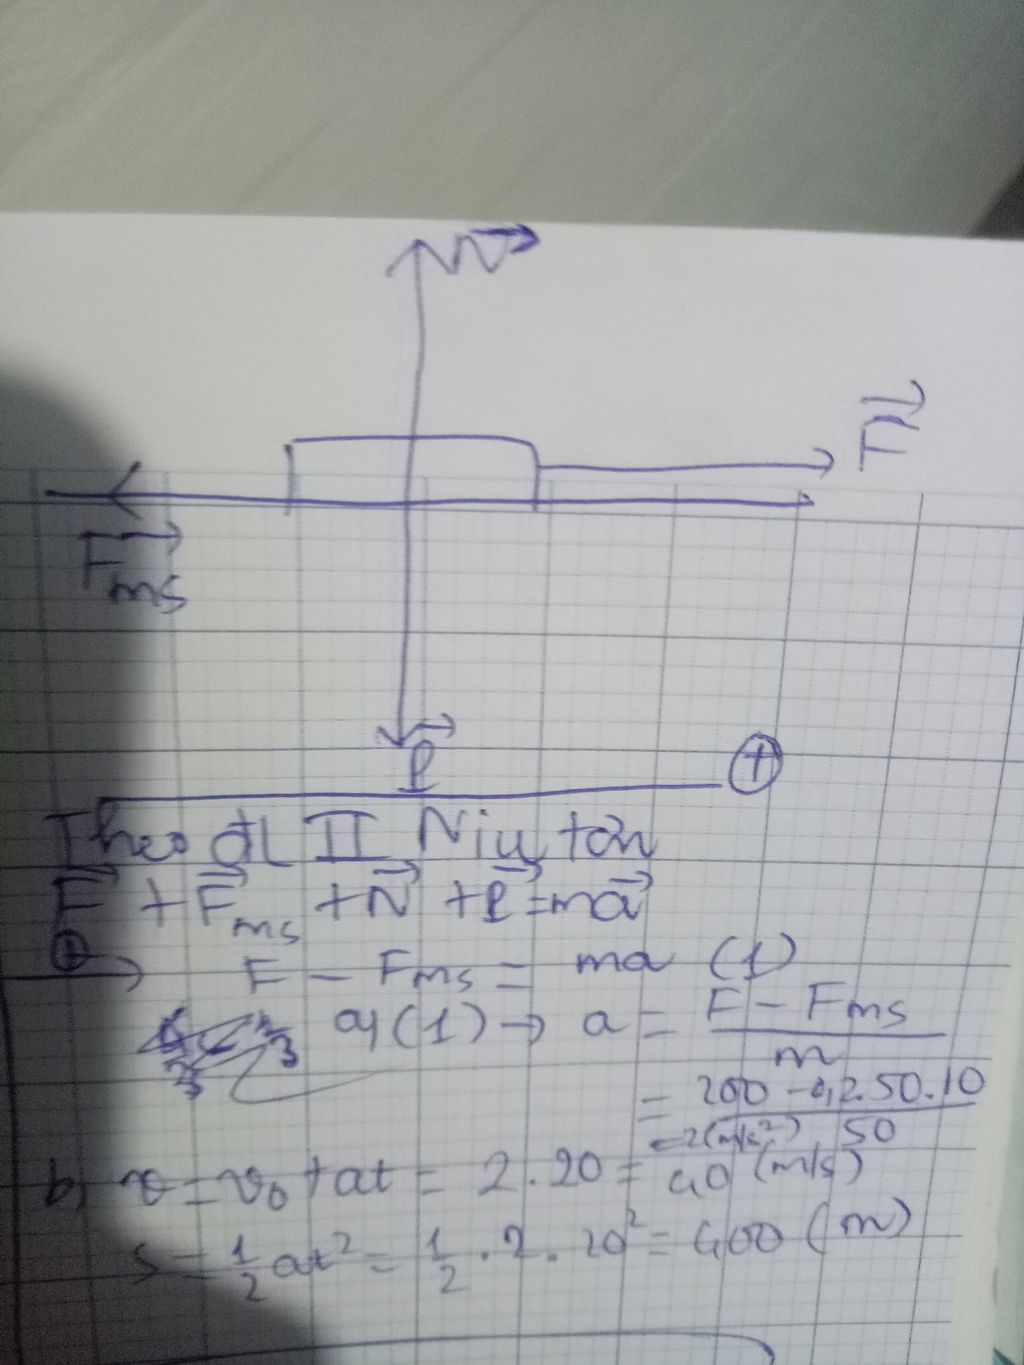 N
F
Fms
P
+
Theo đl II Niu tơn
F + Fms + N + P = ma
+
F - Fms = ma (1)
(1) → a = F - Fms / m
= 200 - 0,2.50.10 / 50
= 2(m/s²)
b) v = v₀ + at = 2.20 = 40 (m/s)
s = 1/2 at² = 1/2 . 2 . 20² = 400 (m)